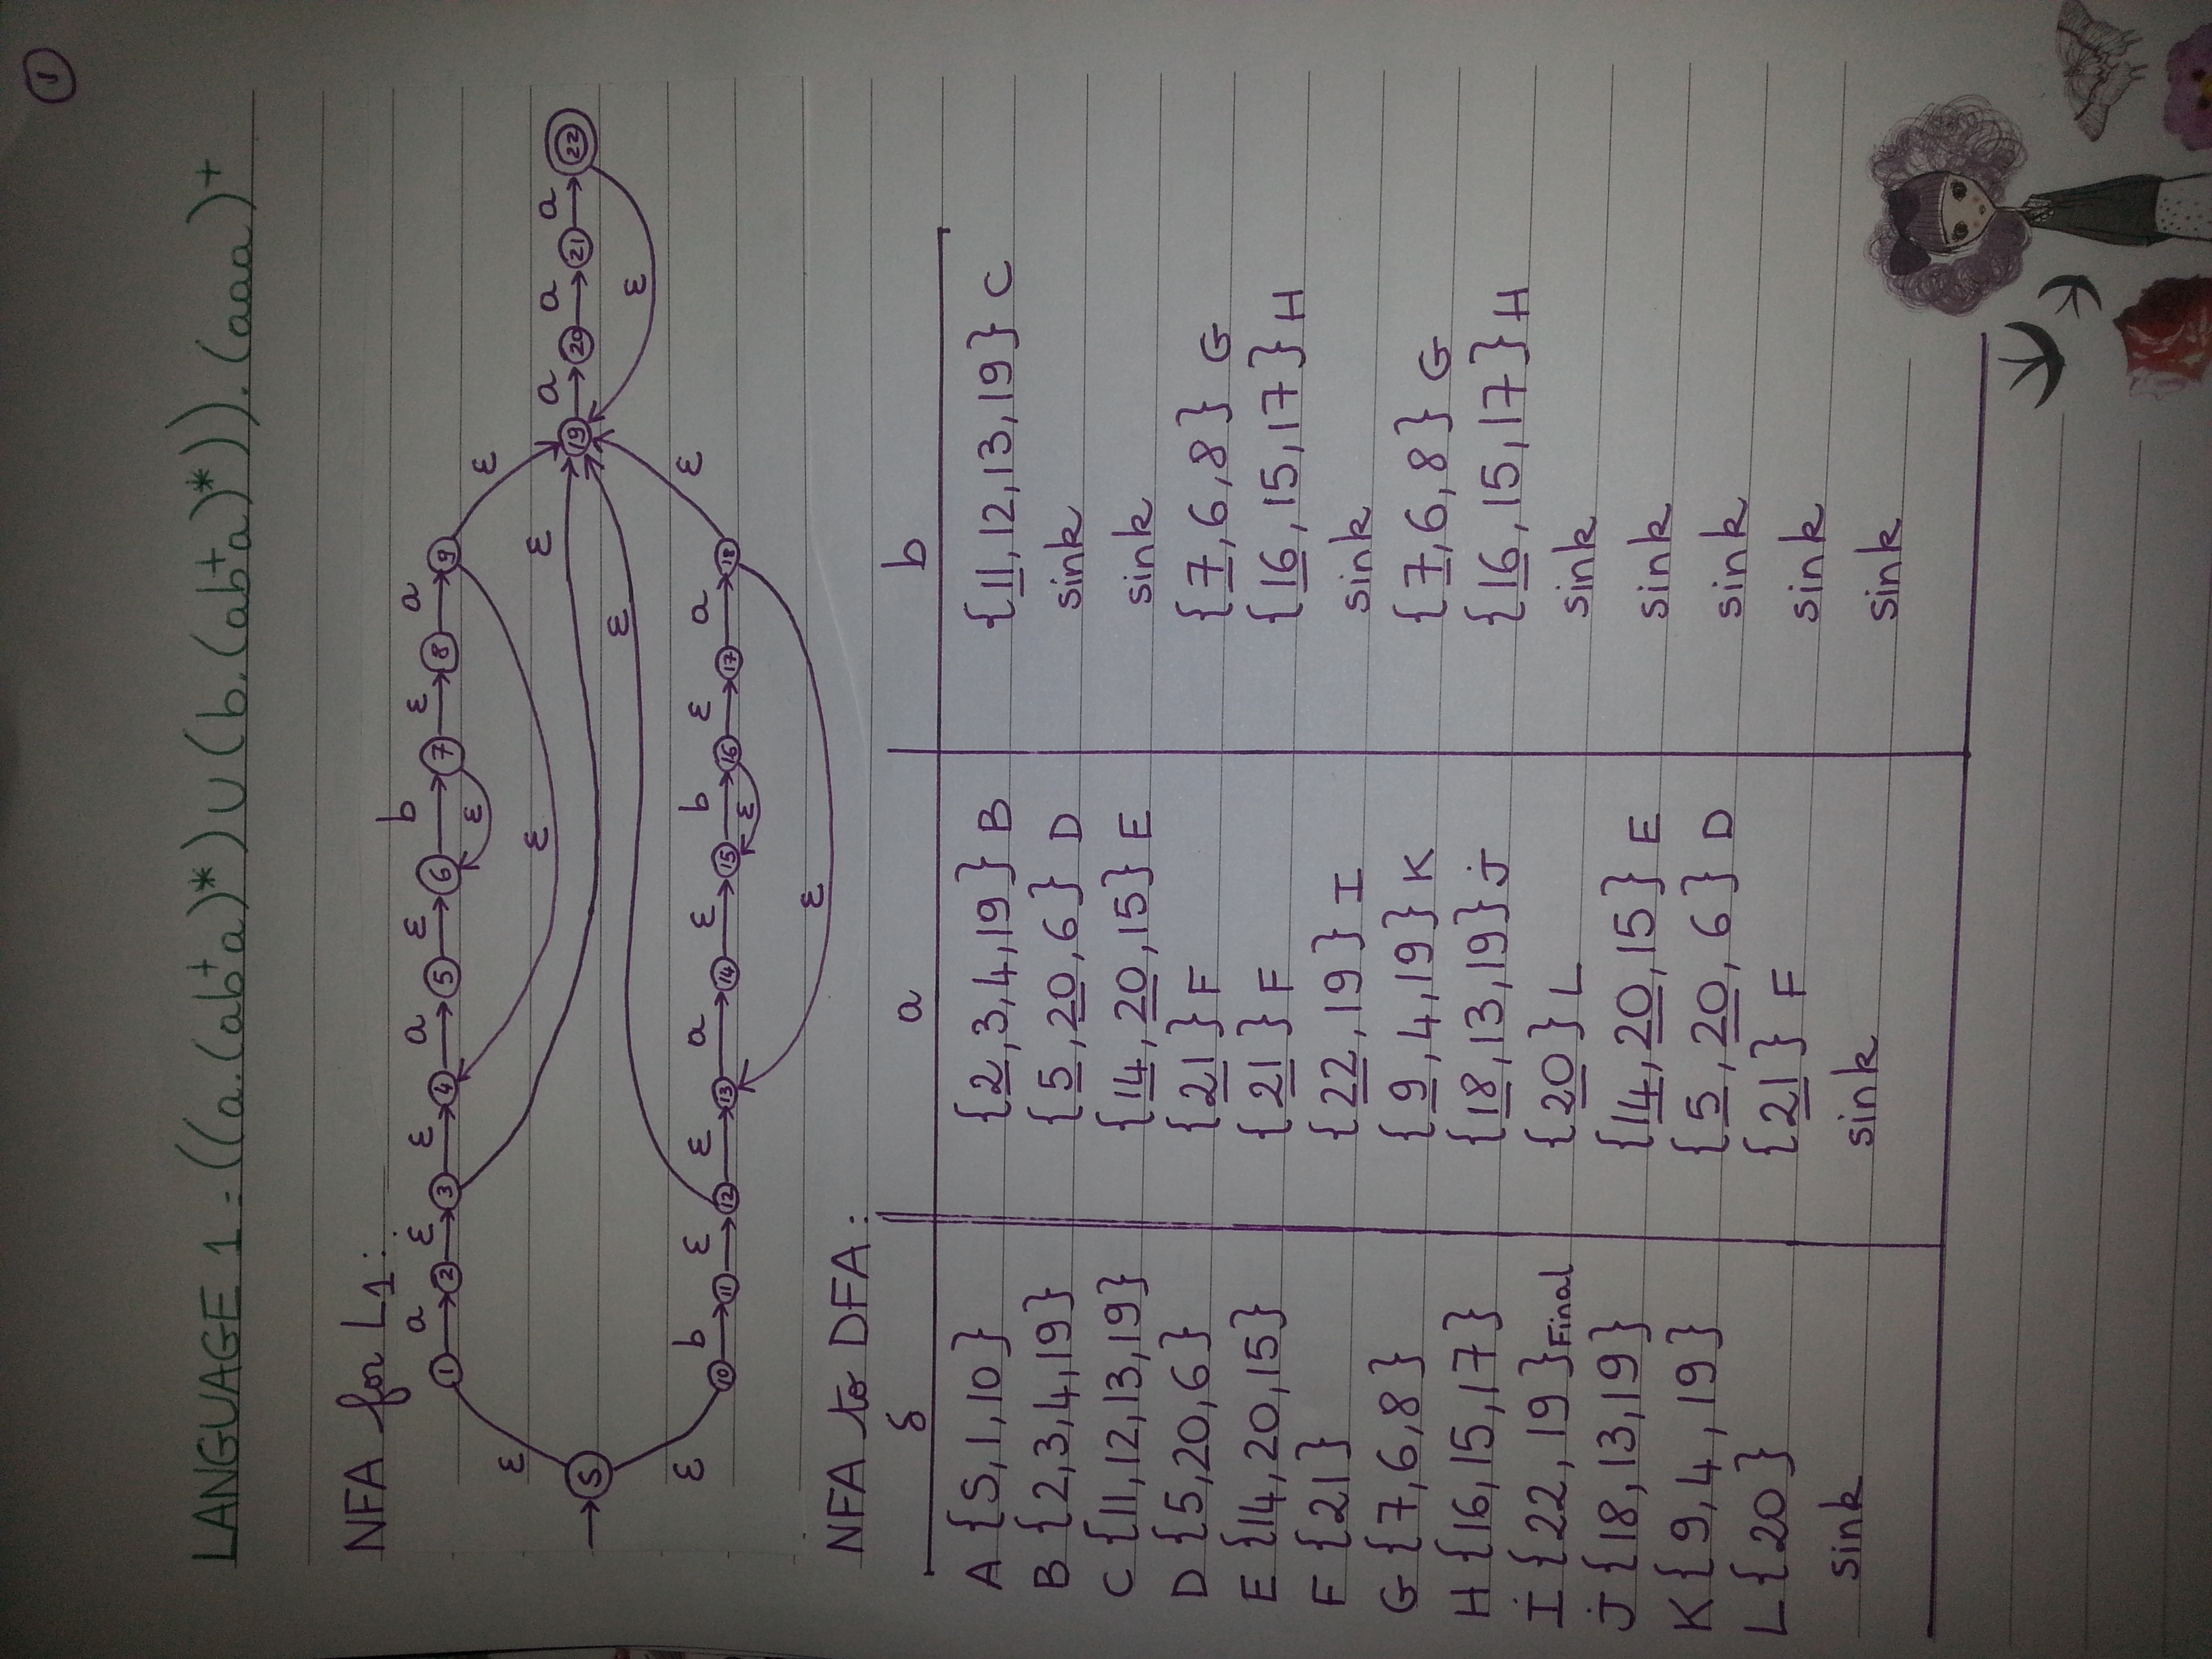 1
LANGUAGE 1 : ((a.(ab⁺a)*) ∪ (b.(ab⁺a)*)).(aaa)⁺
NFA for L1:
a ε ε a ε b ε a
1 2 3 4 5 6 7 8 9
ε ε ε
ε ε a a a
S 19 20 21 22
ε ε ε ε
b ε ε a ε b ε a
10 11 12 13 14 15 16 17 18
ε ε
NFA to DFA:
δ a b
A {S,1,10} {2,3,4,19} B {11,12,13,19} C
B {2,3,4,19} {5,20,6} D sink
C {11,12,13,19} {14,20,15} E sink
D {5,20,6} {21} F {7,6,8} G
E {14,20,15} {21} F {16,15,17} H
F {21} {22,19} I sink
G {7,6,8} {9,4,19} K {7,6,8} G
H {16,15,17} {18,13,19} J {16,15,17} H
I {22,19} Final {20} L sink
J {18,13,19} {14,20,15} E sink
K {9,4,19} {5,20,6} D sink
L {20} {21} F sink
sink sink sink